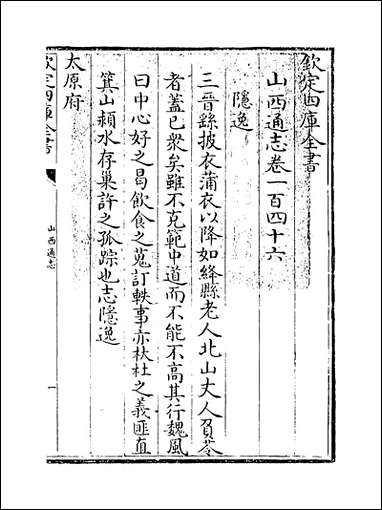 欽定四庫全書
山西通志卷一百四十六
隱逸
三晉繇披衣蒲衣以降如絳縣老人北山丈人負苓
者蓋已衆矣雖不克範中道而不能不高其行魏風
曰中心好之曷飲食之蒐訂軼事亦杕杜之義匪直
箕山潁水存巢許之孤踪也志隱逸
太原府
欽定四庫全書
山西通志
一